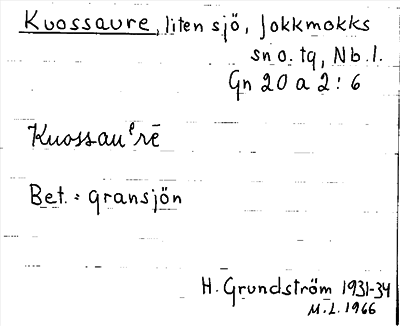 Kuossaure, liten sjö, Jokkmokks
sn o. tg, Nb. l.
Gn 20 a 2 : 6
Kuossauᵉrē
Bet. = gransjön
H. Grundström 1931-34
M.L. 1966